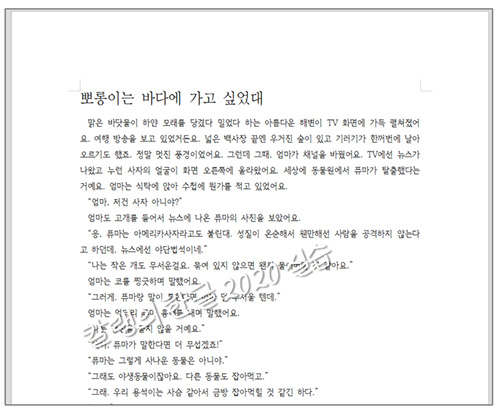 뽀롱이는 바다에 가고 싶었대
맑은 바닷물이 하얀 모래를 당겼다 밀었다 하는 아름다운 해변이 TV 화면에 가득 펼쳐졌어
요. 여행 방송을 보고 있었거든요. 넓은 백사장 끝엔 우거진 숲이 있고 기러기가 한꺼번에 날아
오르기도 했죠. 정말 멋진 풍경이었어요. 그런데 그때, 엄마가 채널을 바꿨어요. TV에선 뉴스가
나왔고 누런 사자의 얼굴이 화면 오른쪽에 올라왔어요. 세상에 동물원에서 퓨마가 탈출했다는
거예요. 엄마는 식탁에 앉아 수첩에 뭔가를 적고 있었어요.
“엄마, 저건 사자 아니야?”
엄마도 고개를 들어서 뉴스에 나온 퓨마의 사진을 보았어요.
“응, 퓨마는 아메리카사자라고도 불린대. 성질이 온순해서 웬만해선 사람을 공격하지 않는다
고 하던데, 뉴스에선 야단법석이네.”
“나는 작은 개도 무서운걸요. 묶여 있지 않으면 같아요.”
엄마는 코를 찡긋하며 말했어요.
“그러게, 퓨마랑 말이 무서울 텐데.”
엄마는 내며 말했어요.
않을 거예요.”
퓨마가 말한다면 더 무섭겠죠!”
“퓨마는 그렇게 사나운 동물은 아니야.”
“그래도 야생동물이잖아요. 다른 동물도 잡아먹고.”
“그래. 우리 용석이는 사슴 같아서 금방 잡아먹힐 것 같긴 하다.”
칼랭의 한글 2020 실습